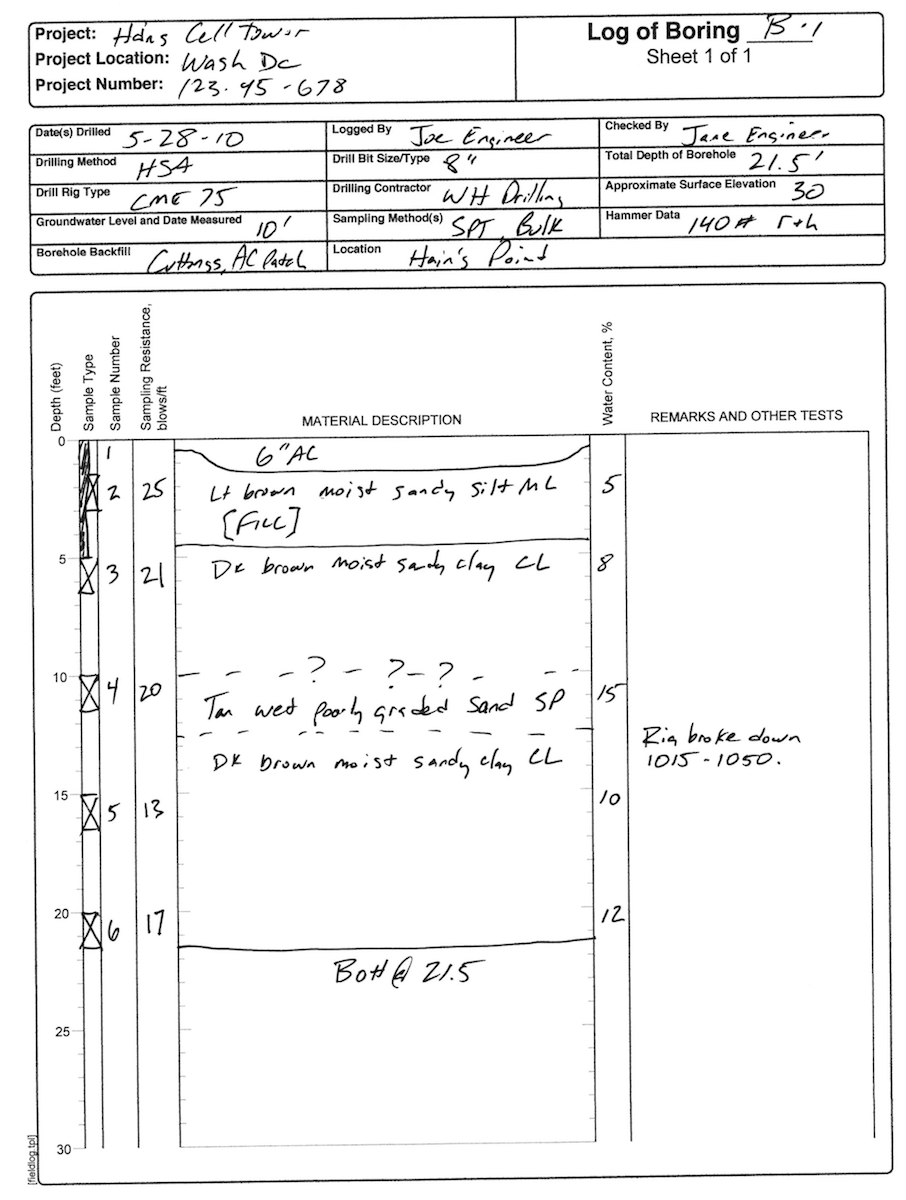 Project: Hdns Cell Tower
Log of Boring B-1
Project Location: Wash Dc
Sheet 1 of 1
Project Number: 123-45-678
Date(s) Drilled 5-28-10
Logged By Joe Engineer
Checked By Jane Engineer
Drilling Method HSA
Drill Bit Size/Type 8"
Total Depth of Borehole 21.5'
Drill Rig Type CME 75
Drilling Contractor WH Drilling
Approximate Surface Elevation 30
Groundwater Level and Date Measured 10'
Sampling Method(s) SPT, Bulk
Hammer Data 140# r+h
Borehole Backfill Cuttings, AC Patch
Location Hain's Point
Depth (feet)
Sample Type
Sample Number
Sampling Resistance, blows/ft
MATERIAL DESCRIPTION
Water Content, %
REMARKS AND OTHER TESTS
0
1
6" AC
2 25 Lt brown moist sandy silt ML 5
[FILL]
5
3 21 Dk brown moist sandy clay CL 8
10 ? ? ?
4 20 Tan wet poorly graded Sand SP 15
Rig broke down
Dk brown moist sandy clay CL
1015-1050.
15
5 13 10
20
6 17 12
Bott @ 21.5
25
30
[fieldlog.tpl]